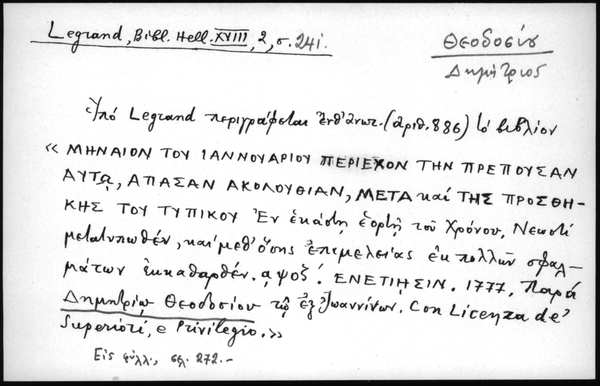 Legrand, Bibl. Hell. XVIII, 2, σ. 241.
Θεοδοσίου
Δημήτριος
Ὑπό Legrand περιγράφεται ἔνθ' ἀνωτ. (ἀριθ. 886) τὸ βιβλίον
« ΜΗΝΑΙΟΝ ΤΟΥ ΙΑΝΝΟΥΑΡΙΟΥ ΠΕΡΙΕΧΟΝ ΤΗΝ ΠΡΕΠΟΥΣΑΝ
ΑΥΤΩ, ΑΠΑΣΑΝ ΑΚΟΛΟΥΘΙΑΝ, ΜΕΤΑ καί ΤΗΣ ΠΡΟΣΘΗ-
ΚΗΣ ΤΟΥ ΤΥΠΙΚΟΥ Ἐν ἑκάστῃ ἑορτῇ τοῦ Χρόνου, Νεωστί
μετατυπωθέν, καί μεθ' ὅσης ἐπιμελείας ἐκ πολλῶν σφαλ-
μάτων ἐκκαθαρθέν. αψοζ΄. ΕΝΕΤΙΗΣΙΝ. 1777. Παρά
Δημητρίῳ Θεοδοσίου τῷ ἐξ Ἰωαννίνων. Con Licenza de'
Superiori, e Privilegio. »
Εἰς φύλλ., σελ. 272. –